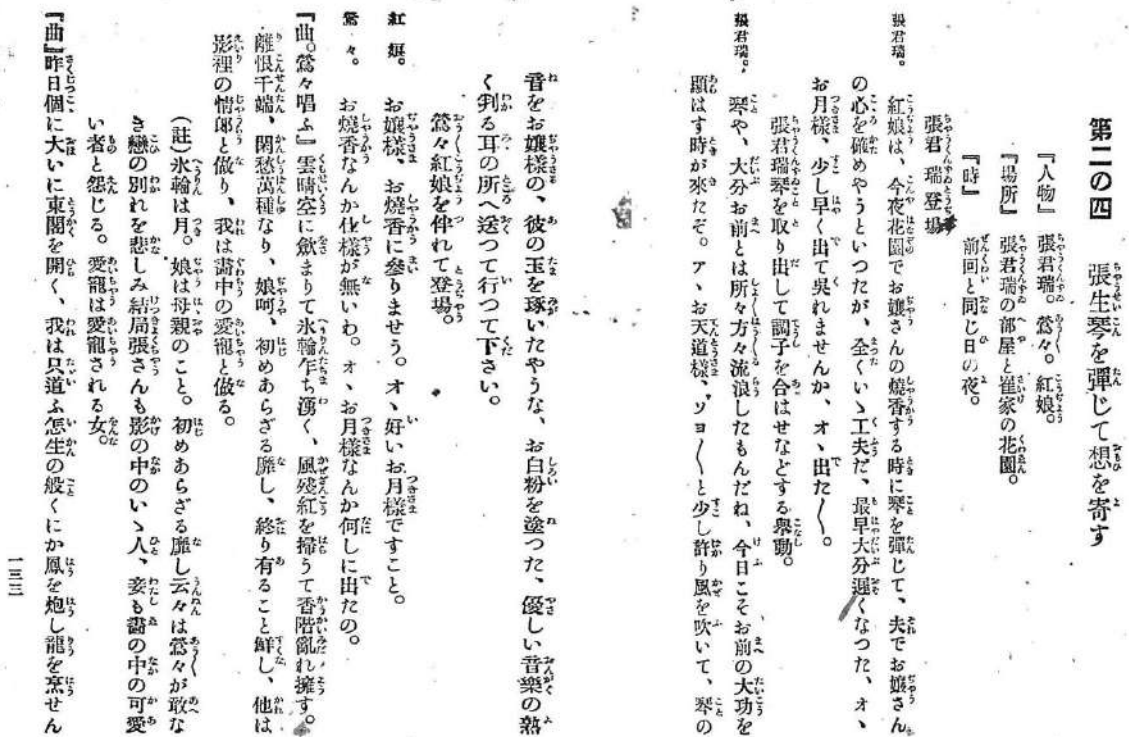 第二の四　張生琴を彈じて想を寄す
『人物』　張君瑞。鶯々。紅娘。
『場所』　張君瑞の部屋と崔家の花園。
『時』　前回と同じ日の夜。
張君瑞登場
張君瑞。　紅娘は、今夜花園でお孃さんの燒香する時に琴を彈じて、夫でお孃さん
の心を確めやうといつたが、全くいゝ工夫だ、最早大分遲くなつた、オヽ
お月樣、少し早く出て吳れませんか、オヽ出た〱。
張君瑞琴を取り出して調子を合はせなどする擧動。
張君瑞。　琴や、大分お前とは所々方々流浪したもんだね、今日こそお前の大功を
顯はす時が來たぞ。アヽお天道樣、ソヨ〱と少し許り風を吹いて、琴の
音をお孃樣の、彼の玉を琢いたやうな、お白粉を塗つた、優しい音樂の熟
く判る耳の所へ送つて行つて下さい。
鶯々紅娘を伴れて登場。
紅娘。　お孃樣、お燒香に參りませう。オヽ好いお月樣ですこと。
鶯々。　お燒香なんか仕樣が無いわ。オヽお月樣なんか何しに出たの。
『曲。鶯々唱ふ』雲晴空に歛まりて氷輪乍ち湧く、風殘紅を掃うて香階亂れ擁す。
離恨千端、閑愁萬種なり、娘呵、初めあらざる靡し、終り有ること鮮し、他は
影裡の情郎と做り、我は畵中の愛寵と做る。
（註）氷輪は月。娘は母親のこと。初めあらざる靡し云々は鶯々が敢な
き戀の別れを悲しみ結局張さんも影の中のいゝ人、妾も畵の中の可愛
い者と怨じる。愛寵は愛寵される女。
『曲』昨日個に大いに東閣を開く、我は只道ふ怎生の般くにか鳳を炮し龍を烹せん
一三三